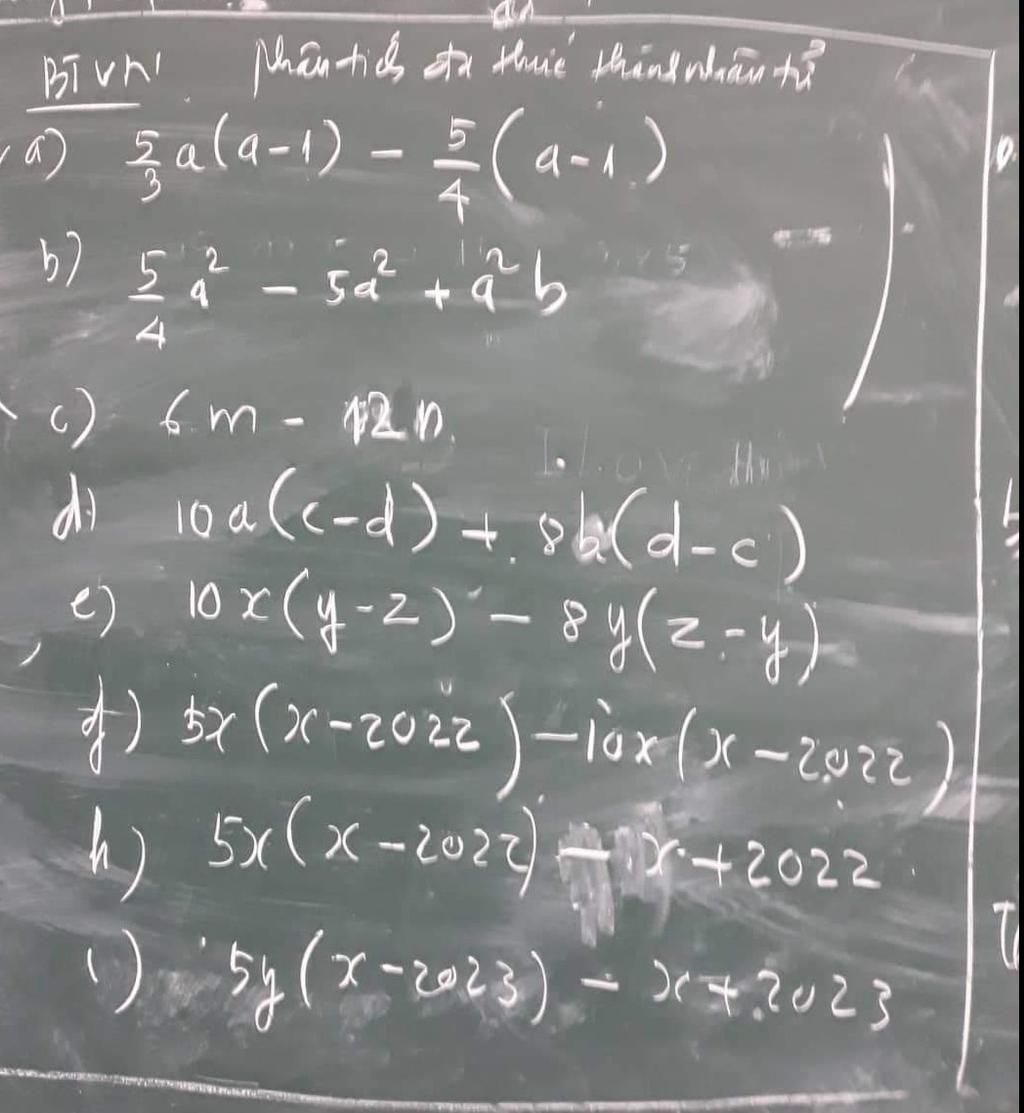 BTVN: Phân tích đa thức thành nhân tử
a) 5/3 a(a-1) - 5/4 (a-1)
b) 5/4 a² - 5a² + a²b
c) 6m - 12n.
d) 10a(c-d) + 8b(d-c)
e) 10x(y-z) - 8y(z-y)
f) 5x(x-2022) - 10x(x-2022)
h) 5x(x-2022) - x + 2022
i) 5y(x-2023) - x + 2023